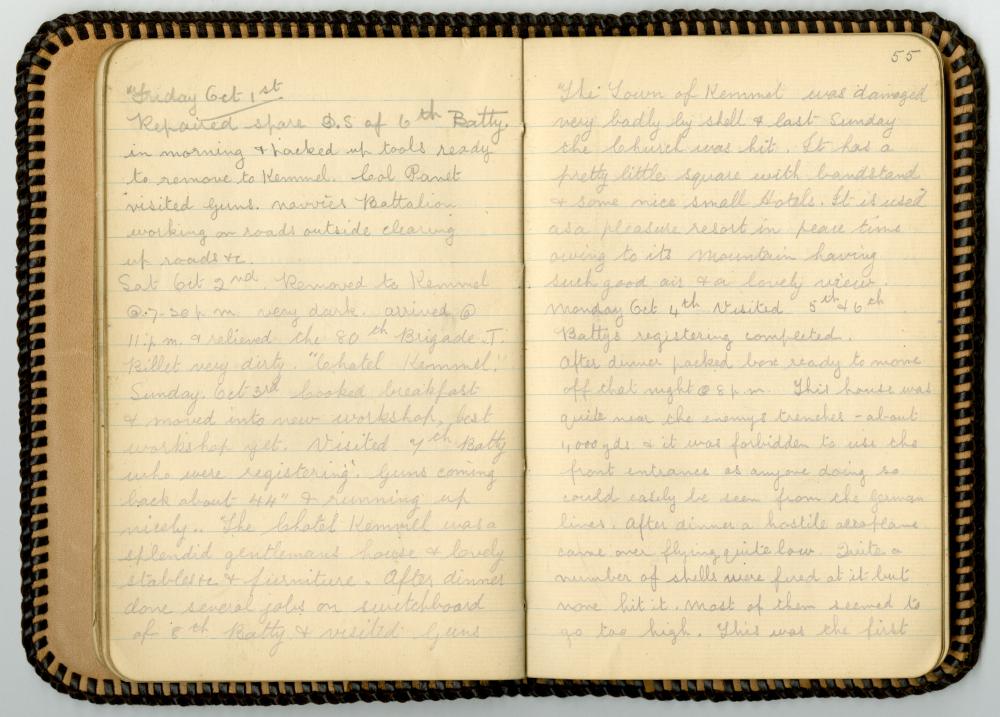 "Friday Oct 1st
Repaired spare D.S of 6th Batty.
in morning & packed up tools ready
to remove to Kemmel. Col Panet
visited Guns. navvies Battalion
working on roads outside clearing
up roads &c.
Sat Oct 2nd Removed to Kemmel
@ 7-30 p.m. very dark. arrived @
11 p.m. & relieved the 80th Brigade.
Billet very dirty. "Chatel Kemmel."
Sunday. Oct 3rd Cooked breakfast
& moved into new workshop, best
workshop yet. Visited 7th Batty
who were registering. Guns coming
back about 44" & running up
nicely.. The Chatel Kemmel was a
splendid gentlemans house & lovely
stables &c & furniture. After dinner
done several jobs on switchboard
of 8th Batty & visited Guns
55
"The Town of Kemmel was damaged
very badly by shell & last Sunday
the Church was hit. It has a
pretty little square with bandstand
& some nice small Hotels. It is used
as a pleasure resort in peace time
owing to its Mountain having
such good air & a lovely view.
Monday Oct 4th Visited 5th & 6th
Battys registering completed.
After dinner packed box ready to move
off that night @ 8 p.m. This house was
quite near the enemys trenches - about
1,000 yds & it was forbidden to use the
front entrance as anyone doing so
could easily be seen from the German
lines. After dinner a hostile aeroplane
came over flying quite low. Quite a
number of shells were fired at it but
none hit it. Most of them seemed to
go too high. This was the first